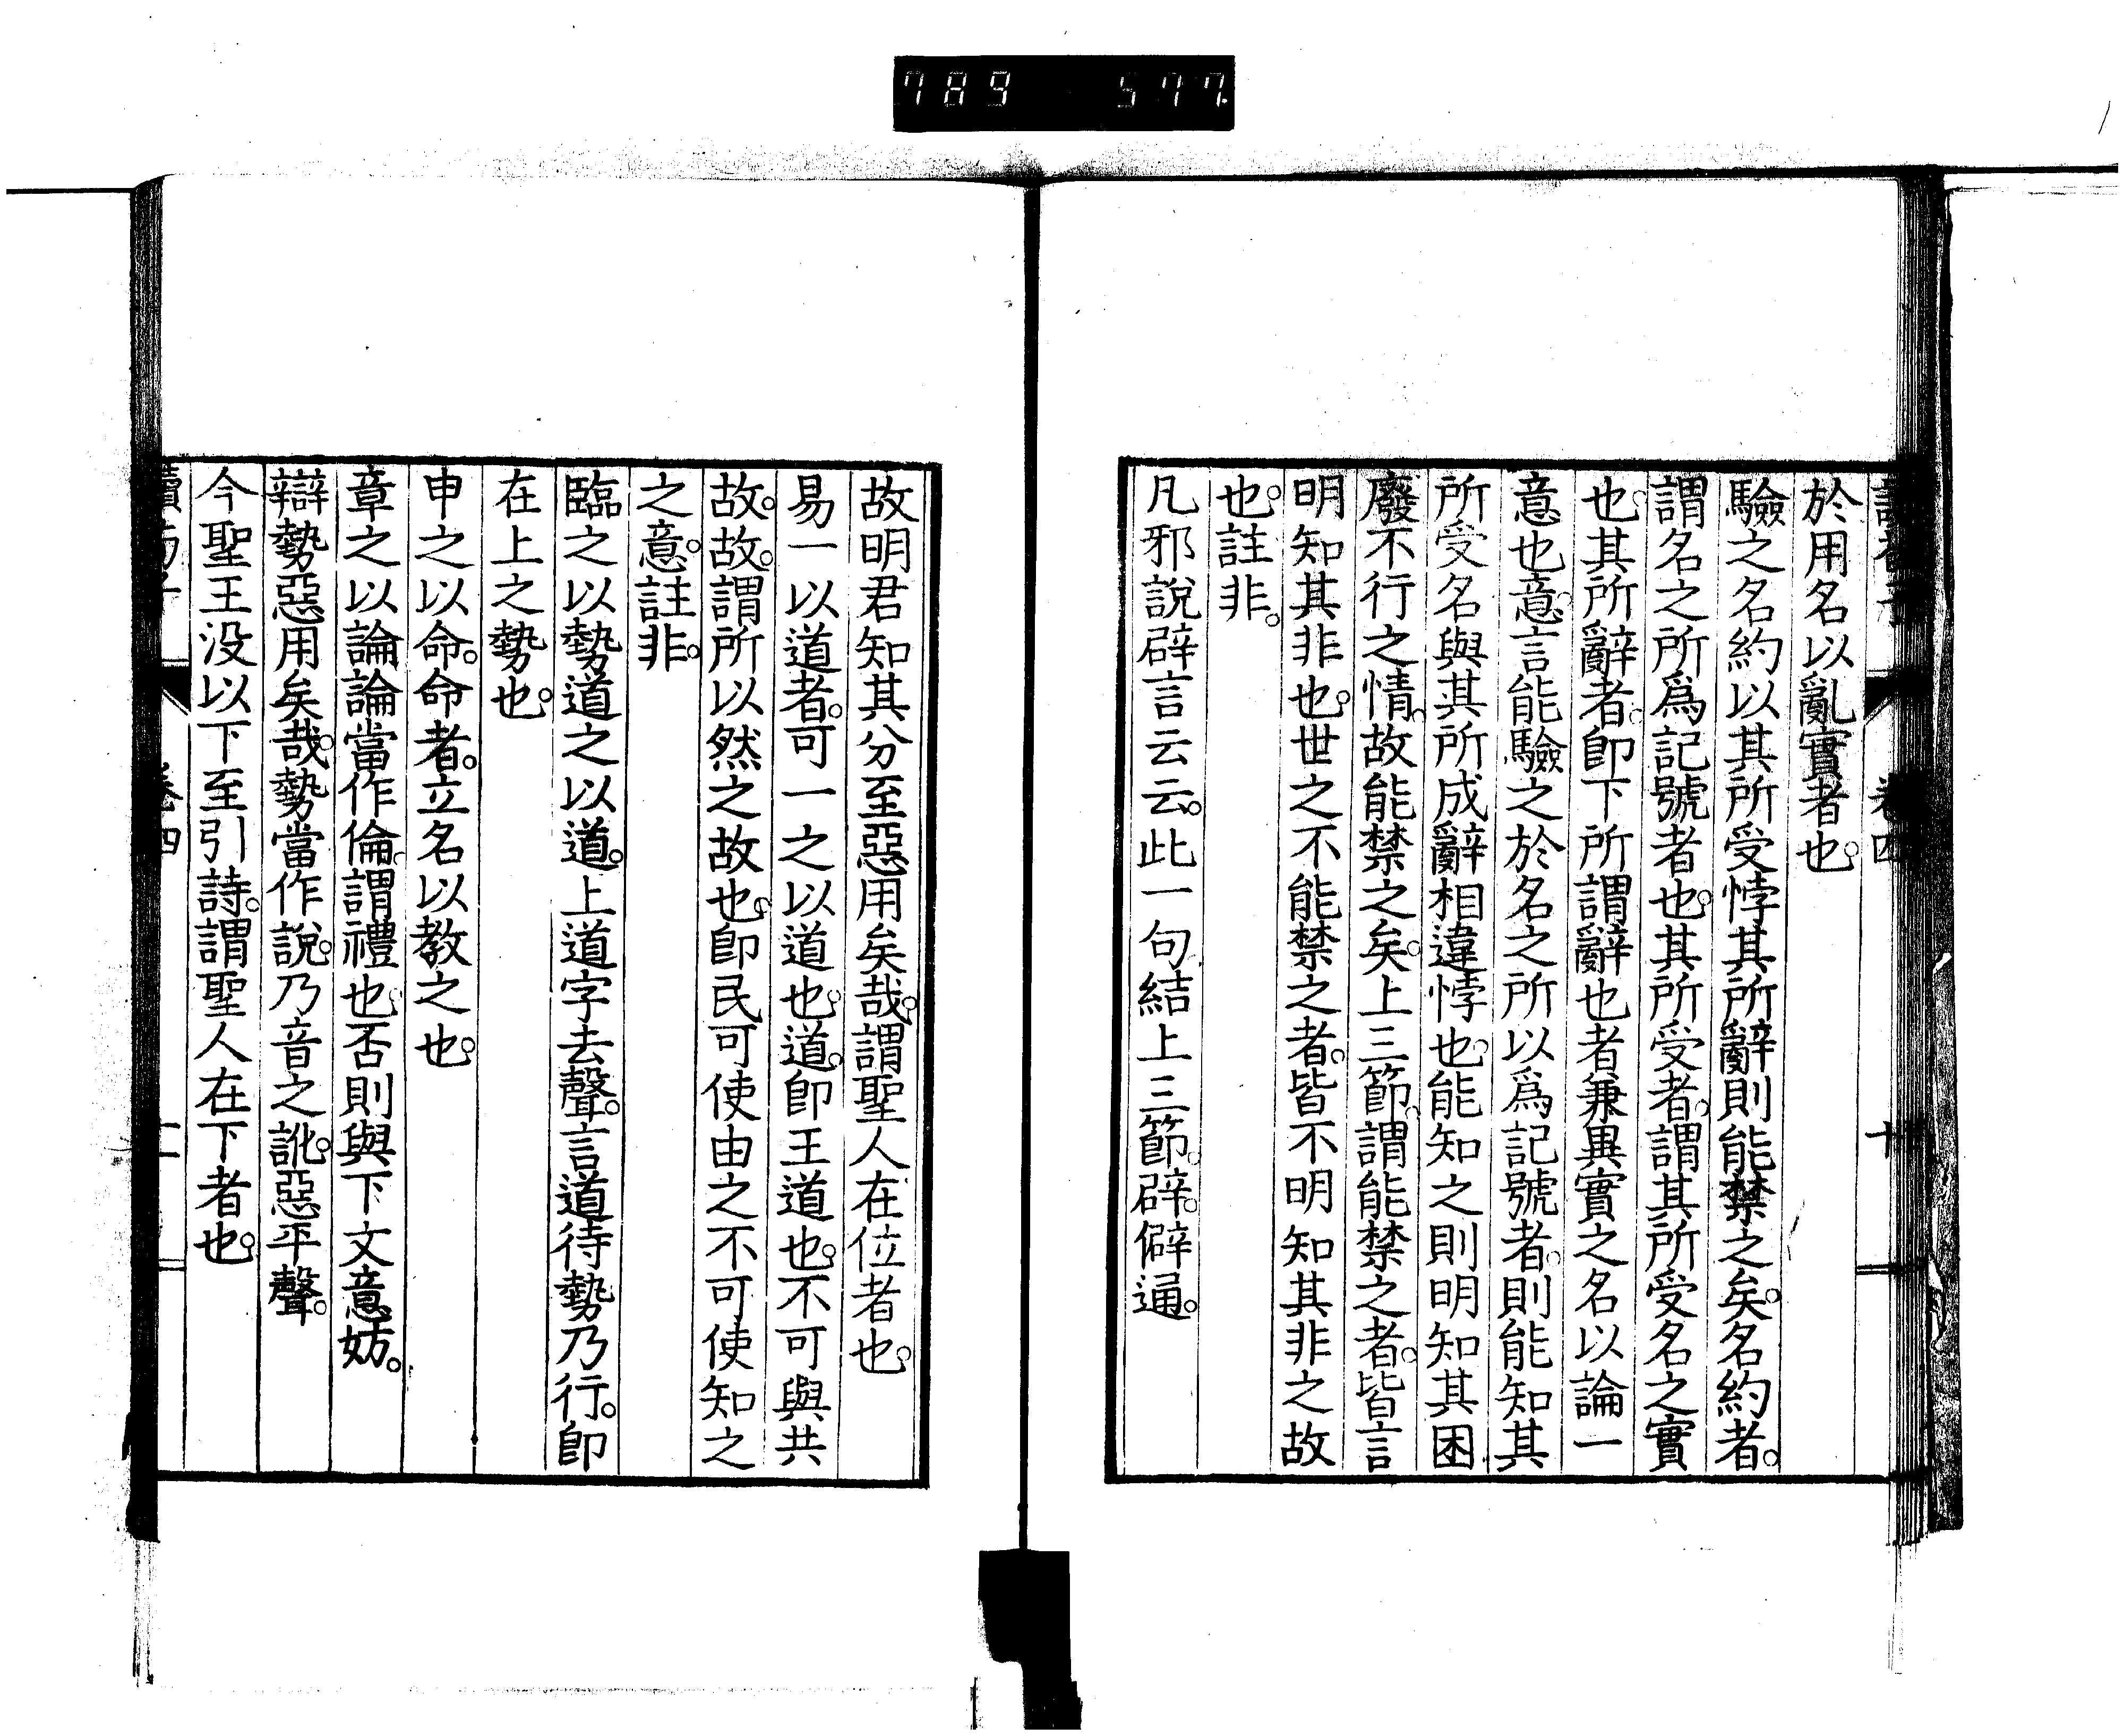 789 577
於用名以亂實者也。
驗之名約以其所受悖其所辭則能禁之矣。名約者。
謂名之所爲記號者也。其所受者。謂其所受名之實
也。其所辭者。卽下所謂辭也者兼異實之名以論一
意也。意言能驗之於名之所以爲記號者。則能知其
所受名與其所成辭相違悖也。能知之則明知其困
廢不行之情。故能禁之矣。上三節。謂能禁之者。皆言
明知其非也。世之不能禁之者。皆不明知其非之故
也。註非。
凡邪說辟言云云。此一句結上三節。辟。僻通。
故明君知其分至惡用矣哉。謂聖人在位者也。
易一以道者。可一之以道也。道。卽王道也。不可與共
故。故。謂所以然之故也。卽民可使由之不可使知之
之意。註非。
臨之以勢道之以道。上道字去聲。言道待勢乃行。卽
在上之勢也。
申之以命。命者。立名以教之也。
章之以論論當作倫。謂禮也。否則與下文意妨。
辯勢惡用矣哉。勢當作說。乃音之訛。惡平聲。
今聖王没以下至引詩。謂聖人在下者也。
卷四